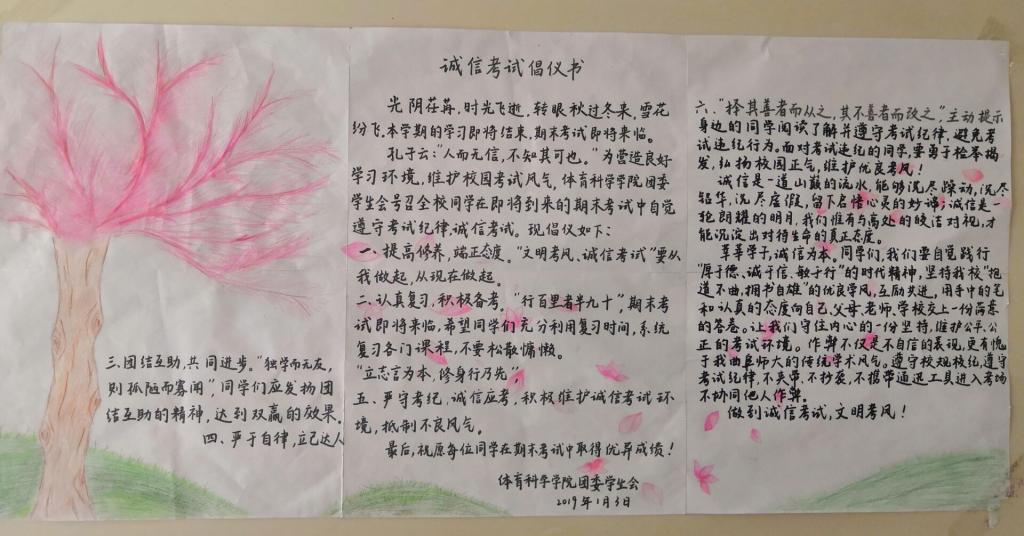 三.团结互助,共同进步。“独学而无友,
则孤陋而寡闻”,同学们应发扬团
结互助的精神,达到双赢的效果。
四、严于自律,立己达人
诚信考试倡仪书
光阴荏苒,时光飞逝,转眼秋过冬来,雪花
纷飞,本学期的学习即将结束,期末考试即将来临。
孔子云:“人而无信,不知其可也。”为营造良好
学习环境,维护校园考试风气,体育科学学院团委
学生会号召全校同学在即将到来的期末考试中自觉
遵守考试纪律,诚信考试。现倡仪如下:
一、提高修养,端正态度。“文明考风、诚信考试”要从
我做起,从现在做起。
二、认真复习,积极备考。“行百里者半九十”,期末考
试即将来临,希望同学们充分利用复习时间,系统
复习各门课程,不要松散慵懒。
“立志言为本,修身行乃先”,
五、严守考纪,诚信应考,积极维护诚信考试环
境,抵制不良风气。
最后,祝愿每位同学在期末考试中取得优异成绩!
体育科学学院团委学生会
2019年1月3日
六、“择其善者而从之,其不善者而改之,”主动提示
身边的同学阅读了解并遵守考试纪律,避免考
试违纪行为。面对考试违纪的同学,要勇于检举揭
发,弘扬校园正气,维护优良考风!
诚信是一道山巅的流水,能够洗尽躁动,洗尽
铅华,洗尽虚假,留下启悟心灵的妙谛;诚信是一
轮朗耀的明月,我们惟有与高处的皎洁对视,才
能沉淀出对待生命的真正态度。
莘莘学子,诚信为本。同学们,我们要自觉践行
“厚于德、诚于信、敏于行”的时代精神,坚持我校“抱
道不曲,拥书自雄”的优良学风,互励共进,用手中的笔
和认真的态度向自己、父母、老师、学校交上一份满意
的答卷。让我们守住内心的一份坚持,维护公平、公
正的考试环境。作弊不仅是不自信的表现,更有愧
于我曲阜师大的传统学术风气。遵守校规校纪,遵守
考试纪律,不夹带、不抄袭,不携带通迅工具进入考场
不协同他人作弊。
做到诚信考试,文明考风!